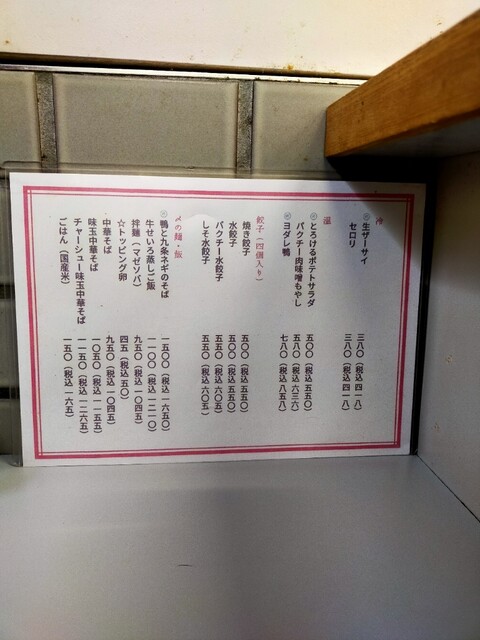 冷
㊋生ザーサイ 三八〇（税込 四一八）
セロリ 三八〇（税込 四一八）
温
㊋とろけるポテトサラダ 五〇〇（税込 五五〇）
パクチー肉味噌もやし 五八〇（税込 六三八）
㊋ヨダレ鴨 七八〇（税込 八五八）
餃子（四個入り）
焼き餃子 五〇〇（税込 五五〇）
水餃子 五〇〇（税込 五五〇）
パクチー水餃子 五五〇（税込 六〇五）
しそ水餃子 五五〇（税込 六〇五）
〆の麺・飯
鴨と九条ネギのそば 一五〇〇（税込 一六五〇）
牛せいろ蒸しご飯 一一〇〇（税込 一二一〇）
拌麺（マゼソバ） 九五〇（税込 一〇四五）
☆トッピング卵 四五（税込 五〇）
中華そば 九五〇（税込 一〇四五）
味玉中華そば 一〇五〇（税込 一一五五）
チャーシュー味玉中華そば 一一五〇（税込 一二六五）
ごはん（国産米） 一五〇（税込 一六五）